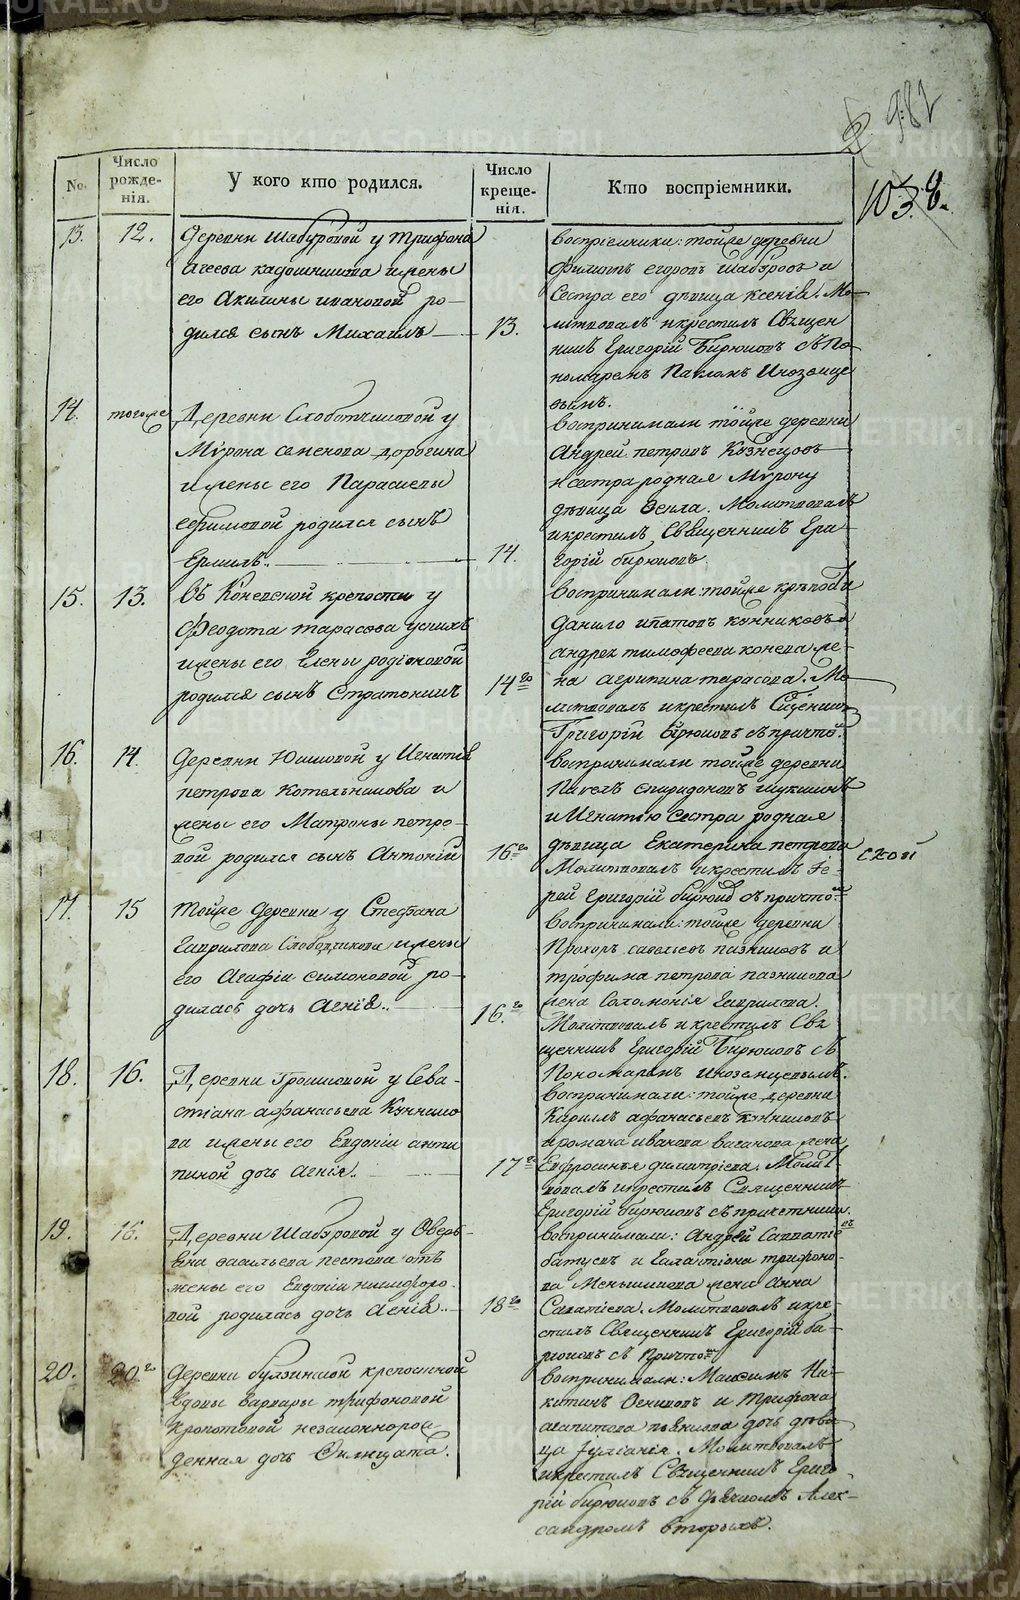 982
103. 8.
No.
Число рожде-нія.
У кого кто родился.
Число креще-нія.
Кто воспріемники.
13.
12.
Деревни Шабуровой у Трифона
его Акилины ивановой ро-
дился сынъ Михаилъ
13.
воспріемники: тойже деревни
Филипъ егоровъ шабуровъ и
Сестра его дѣвица ксенія. Мо-
литвовалъ и крестилъ Священ
никъ Григорій Бирюковъ съ По-
номаремъ Павломъ Инозѣмце
вымъ.
14.
тогоже
Деревни Слободчиковой у
Мѵрона семенова дорогина
и жены его Парасковьи
ефимовой родился сынъ
Ермилъ..
14.
воспринимали тойже деревни
Андрей петровъ Кузнецовъ
и сестра родная Мѵрону
дѣвица Ѳекла. Молитвовалъ
и крестилъ Священникъ Гри-
горій бирюковъ.
15.
13.
Въ Коневской крепости у
Феодота тарасова
и жены его Елены родіоновой
родился сынъ Стратоникъ
14го
воспринимали: тойже крѣпости
Данило ипатовъ кунниковъ
андрея тимофеева конева же-
на агрипина тарасова. Мо
литвовалъ и крестилъ Сщенникъ
Григорій Бирюковъ съ причто.
16.
14.
Деревни Юшковой у Игнатія
петрова Котельникова и
жены его Матроны петро-
вой родился сынъ Антоній
16го
воспринимали тойже деревни
Павелъ спиридоновъ шукшинъ
и Игнатію Сестра родная
дѣвица Екатерина петрова
ской
Молитвовалъ и крестилъ Іе-
рей Григорій бирюков съ причто
17.
15
Тойже Деревни у Стефана
Гаврилова Слободчикова и жены
его Агафіи симоновой ро-
дилась дочь Агнія..
16.го
воспринимали: тойже деревни
Прохоръ савельевъ пазниковъ и
трофима петрова пазникова
жена Соломонія Гаврилова.
Молитвовалъ и крестилъ Свя
щенникъ Григорій Бирюковъ съ
Пономаремъ инозѣмцевымъ.
18.
16.
Деревни Грошковой у Сева-
стіана афанасьева Куннико
ва и жены его Евдокіи анти
пиной дочь Агнія..
17го
воспринимали: тойже деревни
Кирилъ афанасьевъ кунниковъ
и романа иванова ваганова жена
Евфросинья димитріева. Молит
вовалъ и крестилъ Священникъ
Григорій бирюковъ съ причетники.
19.
16.
Деревни Шабуровой у Аверь-
яна васильева пестова отъ
жены его Евдокіи никифоро-
вой родилась дочь Агнія..
18го
воспринимали: Андрей Савватіевъ
батуевъ и Галактіона трифоно-
ва Меньшикова жена Анна
Саватіева. Молитвовалъ и кре-
стилъ Священникъ Григорій би-
рюковъ съ Причто
20.
20го
Деревни булзинской крепостной
вдовы варвары трифоновой
кропотовой незаконнорож
денная дочь
воспринимали: Максимъ Ни-
китинъ и Трифона
агапитова дочь дѣви-
ца Іуліанія. Молитвовалъ
и крестилъ Священникъ Григо-
рій бирюковъ съ дьячкомъ Алек-
сандромъ вторыхъ.
METRIKI.GASO-URAL.RU